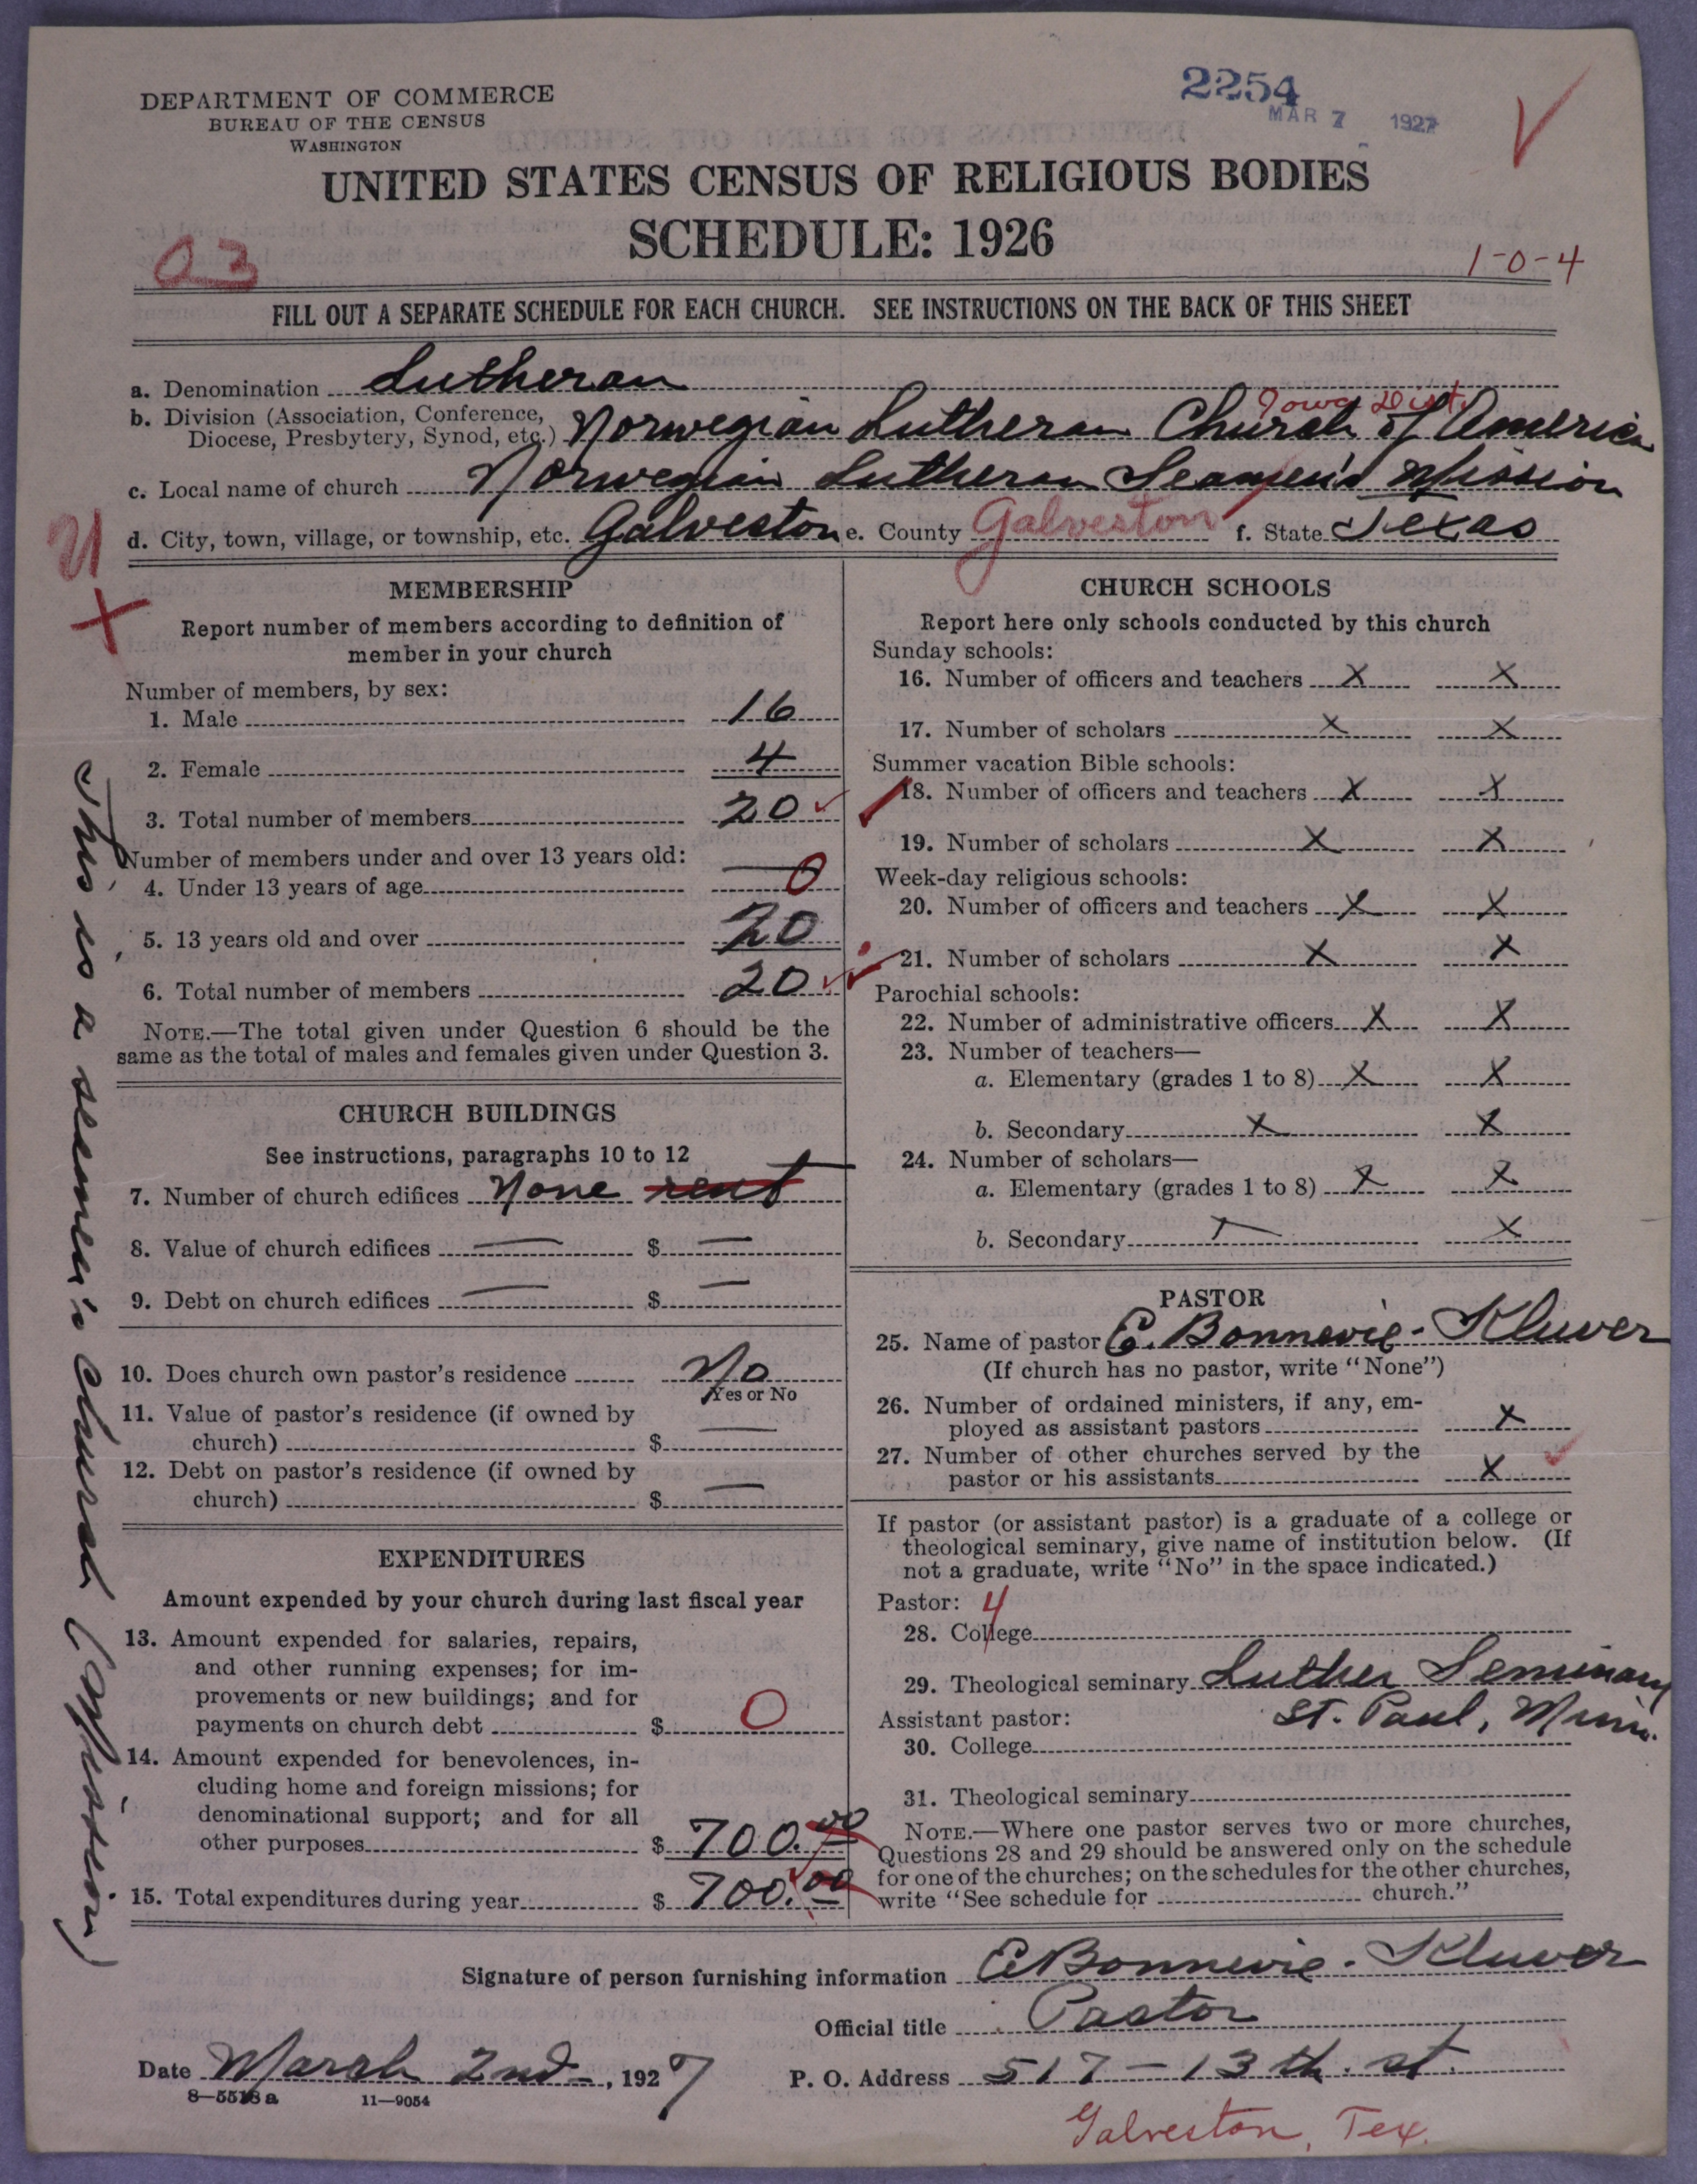 DEPARTMENT OF COMMERCE
BUREAU OF THE CENSUS
WASHINGTON
2254
MAR 7 1927
UNITED STATES CENSUS OF RELIGIOUS BODIES
SCHEDULE: 1926
03
1-0-4
FILL OUT A SEPARATE SCHEDULE FOR EACH CHURCH. SEE INSTRUCTIONS ON THE BACK OF THIS SHEET
a. Denomination Lutheran
Iowa Dist.
b. Division (Association, Conference, Diocese, Presbytery, Synod, etc.) Norwegian Lutheran Church of America
c. Local name of church Norwegian Lutheran Seamen's Mission
d. City, town, village, or township, etc. Galveston e. County Galveston f. State Texas
MEMBERSHIP
Report number of members according to definition of
member in your church
Number of members, by sex:
1. Male 16
2. Female 4
3. Total number of members 20
Number of members under and over 13 years old:
4. Under 13 years of age — 0
5. 13 years old and over 20
6. Total number of members 20
NOTE.—The total given under Question 6 should be the
same as the total of males and females given under Question 3.
CHURCH BUILDINGS
See instructions, paragraphs 10 to 12
7. Number of church edifices None rent
8. Value of church edifices — $ —
9. Debt on church edifices — $ —
10. Does church own pastor's residence No
Yes or No
11. Value of pastor's residence (if owned by
church) $ —
12. Debt on pastor's residence (if owned by
church) $ —
EXPENDITURES
Amount expended by your church during last fiscal year
13. Amount expended for salaries, repairs,
and other running expenses; for im-
provements or new buildings; and for
payments on church debt $ 0
14. Amount expended for benevolences, in-
cluding home and foreign missions; for
denominational support; and for all
other purposes $ 700.00
15. Total expenditures during year $ 700.00
This is a seamen's church (Mission)
CHURCH SCHOOLS
Report here only schools conducted by this church
Sunday schools:
16. Number of officers and teachers X X
17. Number of scholars X X
Summer vacation Bible schools:
18. Number of officers and teachers X X
19. Number of scholars X X
Week-day religious schools:
20. Number of officers and teachers X X
21. Number of scholars X X
Parochial schools:
22. Number of administrative officers X X
23. Number of teachers—
a. Elementary (grades 1 to 8) X X
b. Secondary X X
24. Number of scholars—
a. Elementary (grades 1 to 8) X X
b. Secondary X
PASTOR
25. Name of pastor E. Bonnevie-Kluver
(If church has no pastor, write "None")
26. Number of ordained ministers, if any, em-
ployed as assistant pastors X
27. Number of other churches served by the
pastor or his assistants X
If pastor (or assistant pastor) is a graduate of a college or
theological seminary, give name of institution below. (If
not a graduate, write "No" in the space indicated.)
Pastor: 4
28. College
29. Theological seminary Luther Seminary
St. Paul, Minn.
Assistant pastor:
30. College
31. Theological seminary
NOTE.—Where one pastor serves two or more churches,
Questions 28 and 29 should be answered only on the schedule
for one of the churches; on the schedules for the other churches,
write "See schedule for church."
Signature of person furnishing information E Bonnevie-Kluver
Official title Pastor
Date March 2nd, 1927 P. O. Address 517 - 13th. st.
8—5518 a 11—9054
Galveston, Tex.